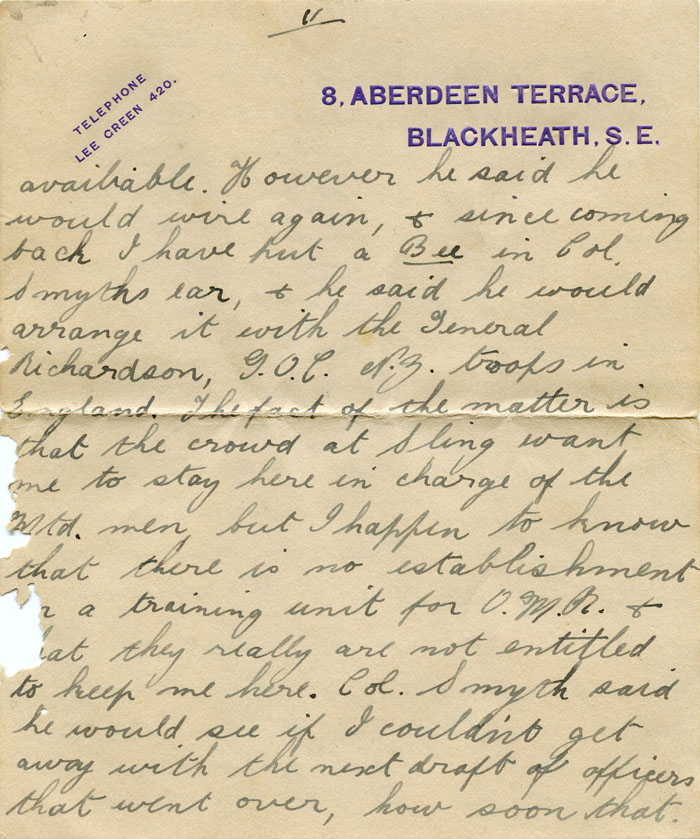 11
TELEPHONE
LEE GREEN 420.
8, ABERDEEN TERRACE,
BLACKHEATH, S.E.
availiable. However he said he
would wire again, & since coming
back I have put a Bee in Col.
Smyths ear, & he said he would
arrange it with the General
Richardson, G.O.C. N.Z. troops in
England. The fact of the matter is
that the crowd at Sling want
me to stay here in charge of the
Mtd. men, but I happen to know
that there is no establishment
r a training unit for O.M.R. &
hat they really are not entitled
to keep me here. Col. Smyth said
he would see if I couldn't get
away with the next draft of officers
that went over, how soon that.